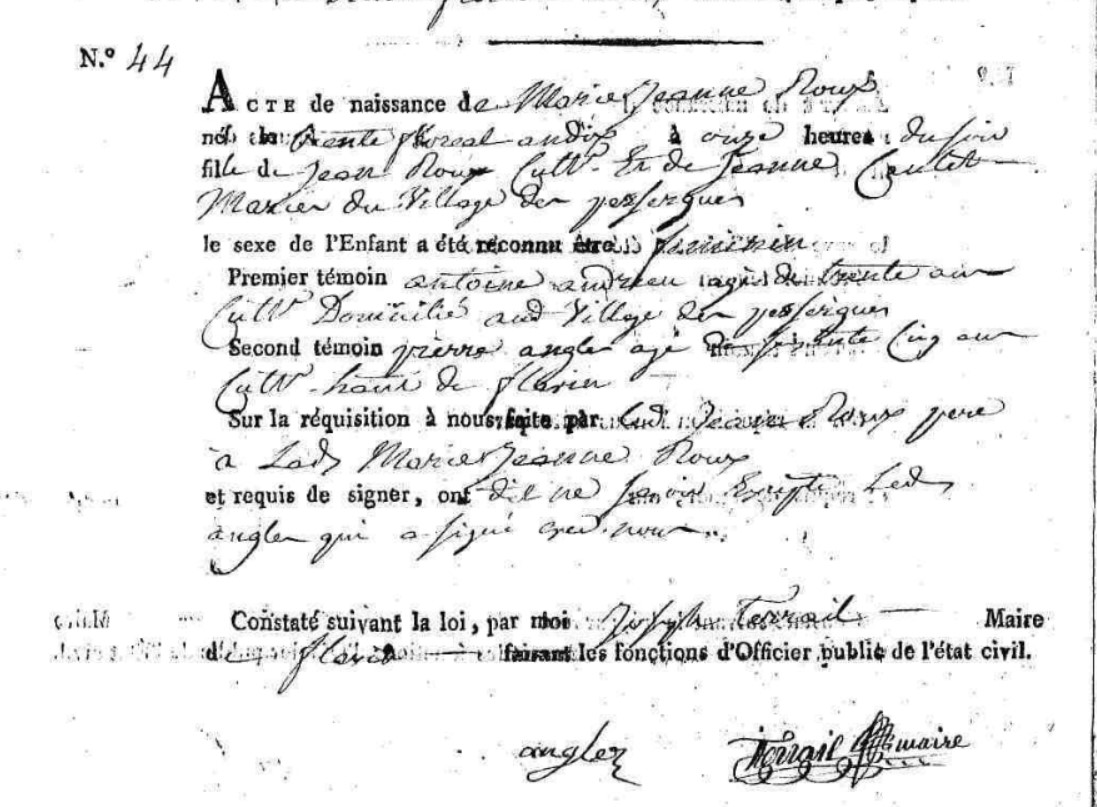 N.º 44
ACTE de naissance de Marie Jeanne Roux
née le trente floreal an dix à onze heures du soir
fille de Jean Roux Cultr. Et de Jeanne
Mariés du Village des
le sexe de l'Enfant a été reconnu être feminin
Premier témoin antoine andrieu agé de trente ans
Cultr. Domicilié aud. Village des
Second témoin pierre angles agé de Cinq ans
Cultr. habt. de florin
Sur la réquisition à nous faite par led. Jean Roux pere
a Lad. Marie Jeanne Roux
et requis de signer, ont dit ne savoir Excepté Led.
angles qui a signé avec nous
Constaté suivant la loi, par moi Joseph Terrail Maire
de faisant les fonctions d'Officier public de l'état civil.
angles Terrail maire